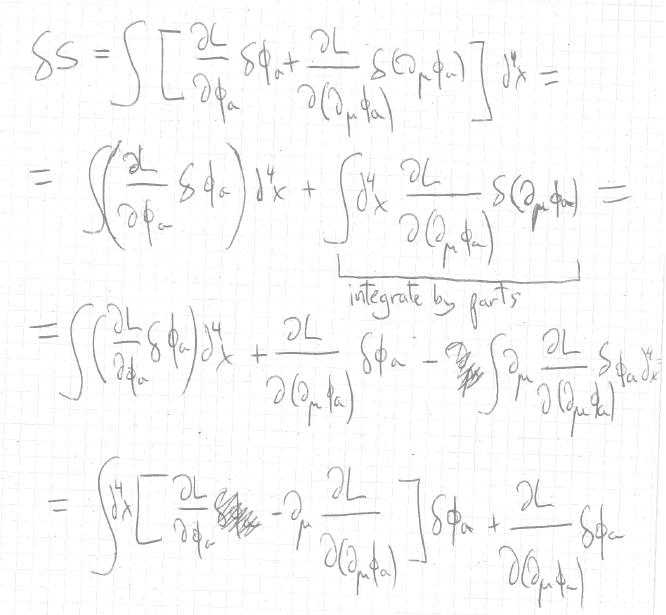 δS = ∫ [ ∂L/∂ϕₐ δϕₐ + ∂L/∂(∂_μ ϕₐ) δ(∂_μ ϕₐ) ] d⁴x =
= ∫ ( ∂L/∂ϕₐ δϕₐ ) d⁴x + ∫ d⁴x ∂L/∂(∂_μ ϕₐ) δ(∂_μ ϕₐ) =
integrate by parts
= ∫ ( ∂L/∂ϕₐ δϕₐ ) d⁴x + ∂L/∂(∂_μ ϕₐ) δϕₐ - ∫ ∂_μ ∂L/∂(∂_μ ϕₐ) δϕₐ d⁴x =
= ∫ d⁴x [ ∂L/∂ϕₐ - ∂_μ ∂L/∂(∂_μ ϕₐ) ] δϕₐ + ∂L/∂(∂_μ ϕₐ) δϕₐ